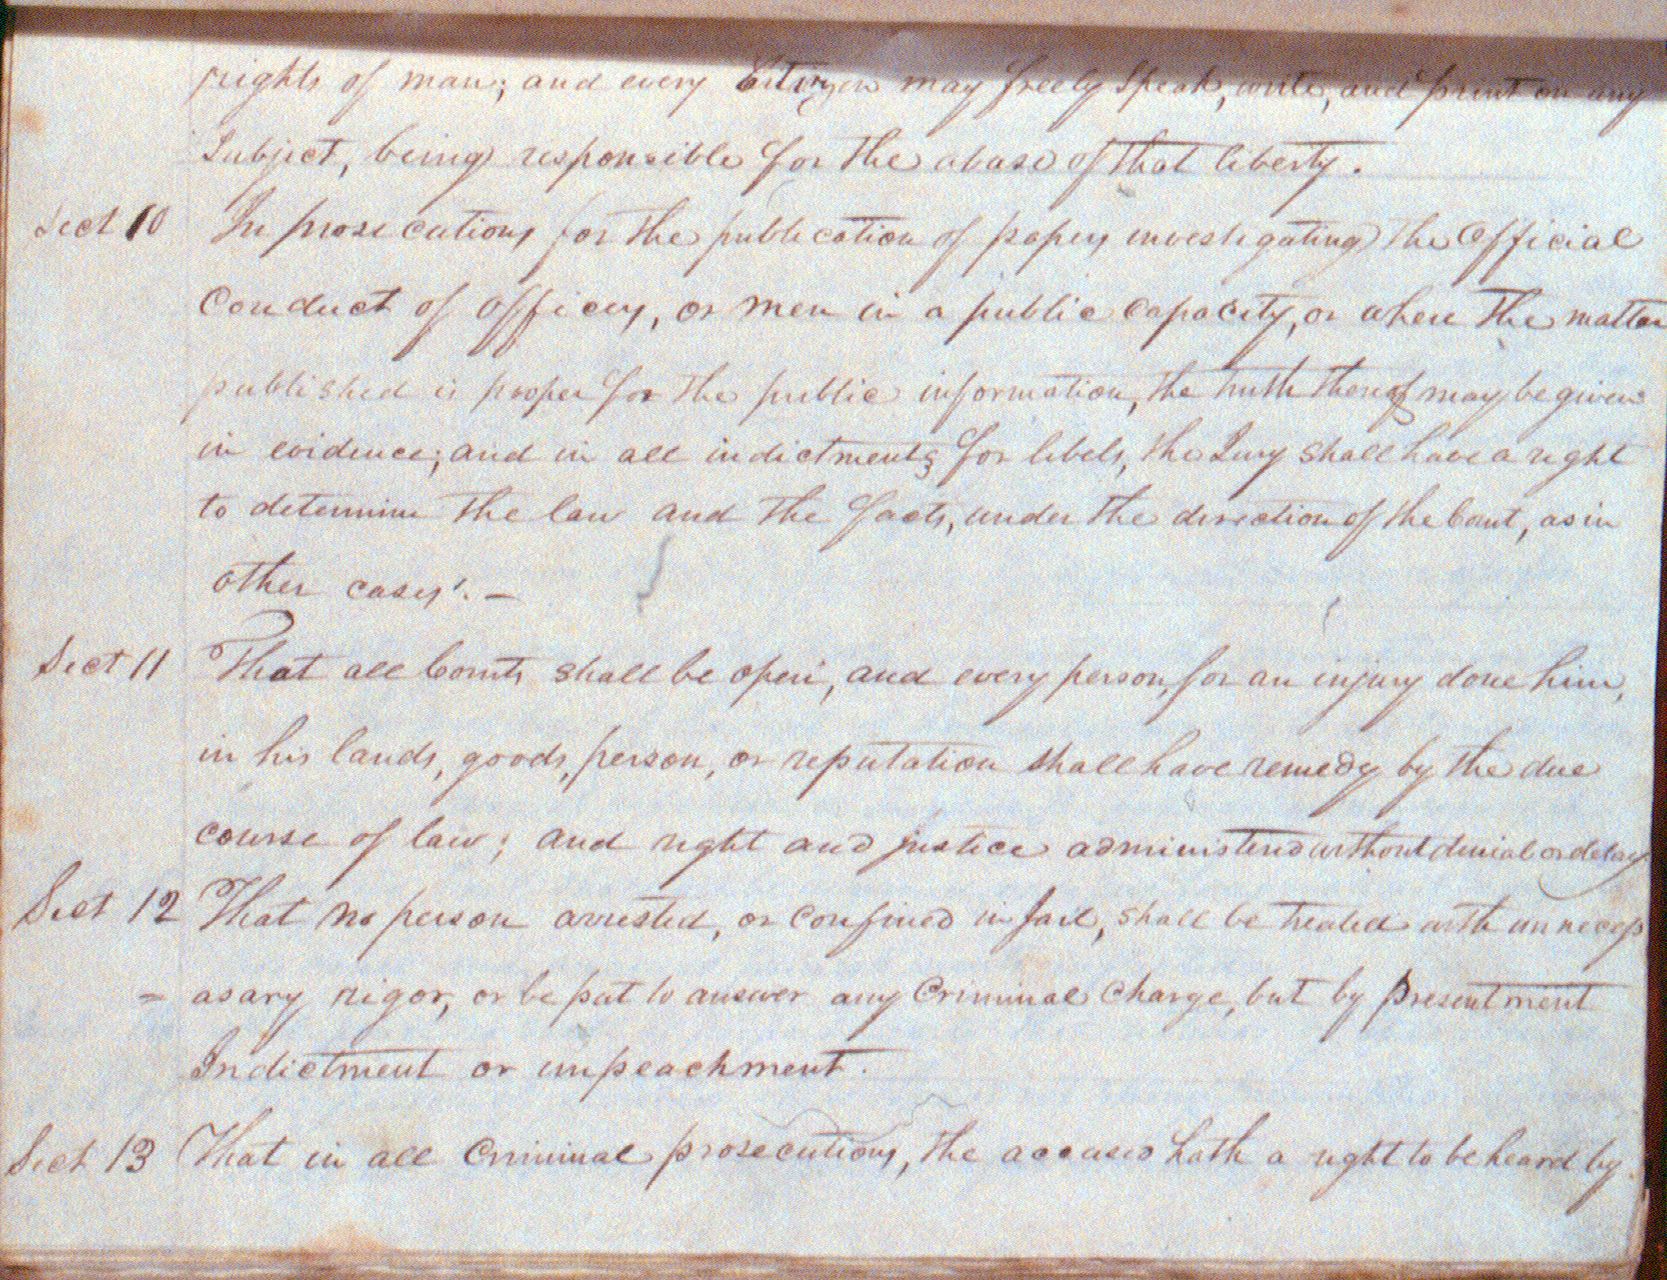 rights of man; and every Citizen may freely speak, write, and print on any
Subject, being responsible for the abase of that liberty.
Sect 10 In prosecutions for the publication of papers investigating the Official
Conduct of officers, or men in a public capacity, or where the matter
published is proper for the public information, the truth thereof may be given
in evidence; and in all indictments for libels, the Jury shall have a right
to determine the law and the facts, under the direction of the Court, as in
other cases. –
Sect 11 That all Courts shall be open, and every person, for an injury done him,
in his lands, goods, person, or reputation shall have remedy by the due
course of law; and right and justice administered without denial or delay
Sect 12 That no person arrested, or confined in Jail, shall be treated with unnecess
= asary rigor, or be put to answer any Criminal Charge, but by presentment
Indictment or impeachment.
Sect 13 That in all Criminal prosecutions, the accused hath a right to be heard by